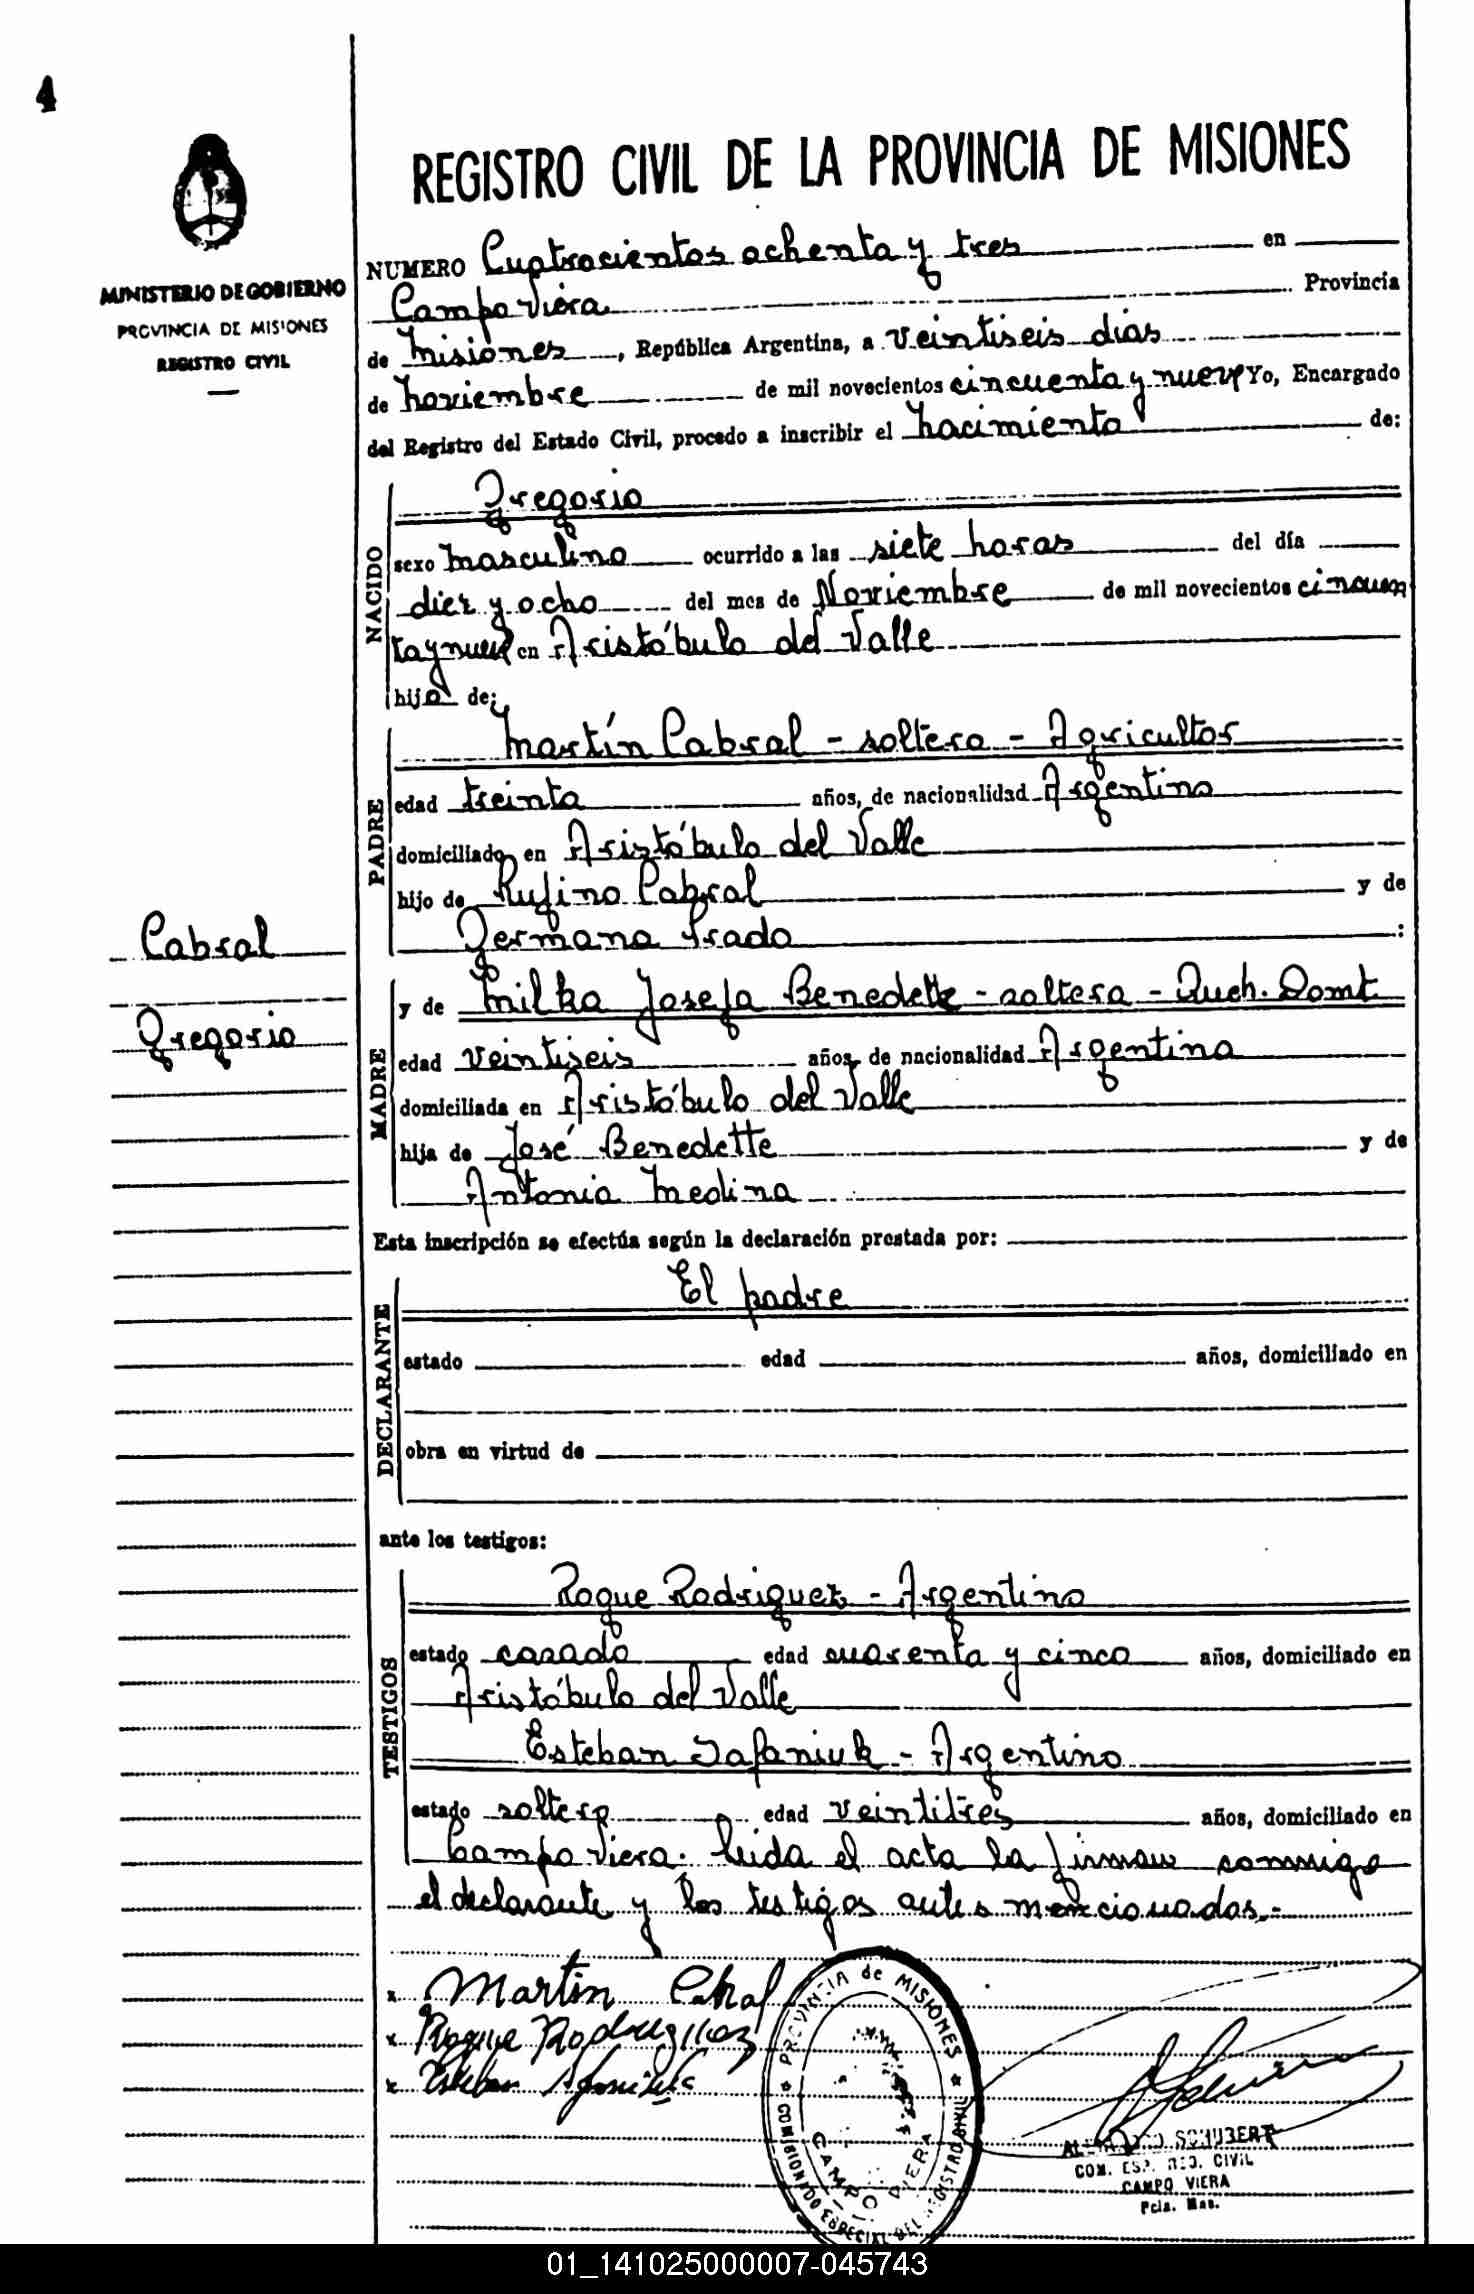 4
REGISTRO CIVIL DE LA PROVINCIA DE MISIONES
MINISTERIO DE GOBIERNO
PROVINCIA DE MISIONES
REGISTRO CIVIL
NUMERO Cuatrocientos ochenta y tres en
Campo Viera Provincia
de Misiones, República Argentina, a veintiseis días
de Noviembre de mil novecientos cincuenta y nueve Yo, Encargado
del Registro del Estado Civil, procedo a inscribir el Nacimiento de:
NACIDO
Gregorio
sexo Masculino ocurrido a las siete horas del día
diez y ocho del mes de Noviembre de mil novecientos cincuen
ta y nueve en Aristóbulo del Valle
hijo de:
PADRE
Martín Cabral - soltero - Agricultor
edad treinta años, de nacionalidad Argentino
domiciliado en Aristóbulo del Valle
hijo de Rufino Cabral y de
Germana Prado :
Cabral
Gregorio
MADRE
y de Milka Josefa Benedette - soltera - Queh. Domt.
edad veintiseis años, de nacionalidad Argentina
domiciliada en Aristóbulo del Valle
hija de José Benedette y de
Antonia Medina
Esta inscripción se efectúa según la declaración prestada por:
DECLARANTE
El padre
estado edad años, domiciliado en
obra en virtud de
ante los testigos:
TESTIGOS
Roque Rodriguez - Argentino
estado casado edad cuarenta y cinco años, domiciliado en
Aristóbulo del Valle
Esteban - Argentino
estado soltero edad veintitres años, domiciliado en
Campo Viera. Leida el acta la firman conmigo
el declarante y los testigos antes mencionados.-
x Martin Cabral
x Roque Rodriguez
x Esteban
PROVINCIA de MISIONES
COMISIONADO ESPECIAL DEL REGISTRO CIVIL
CAMPO VIERA
SCHUBERT
COM. ESP. REG. CIVIL
CAMPO VIERA
Pcia. Mns.
01_141025000007-045743